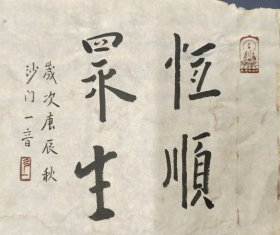 恆順
眾生
歲次庚辰秋
沙门一音